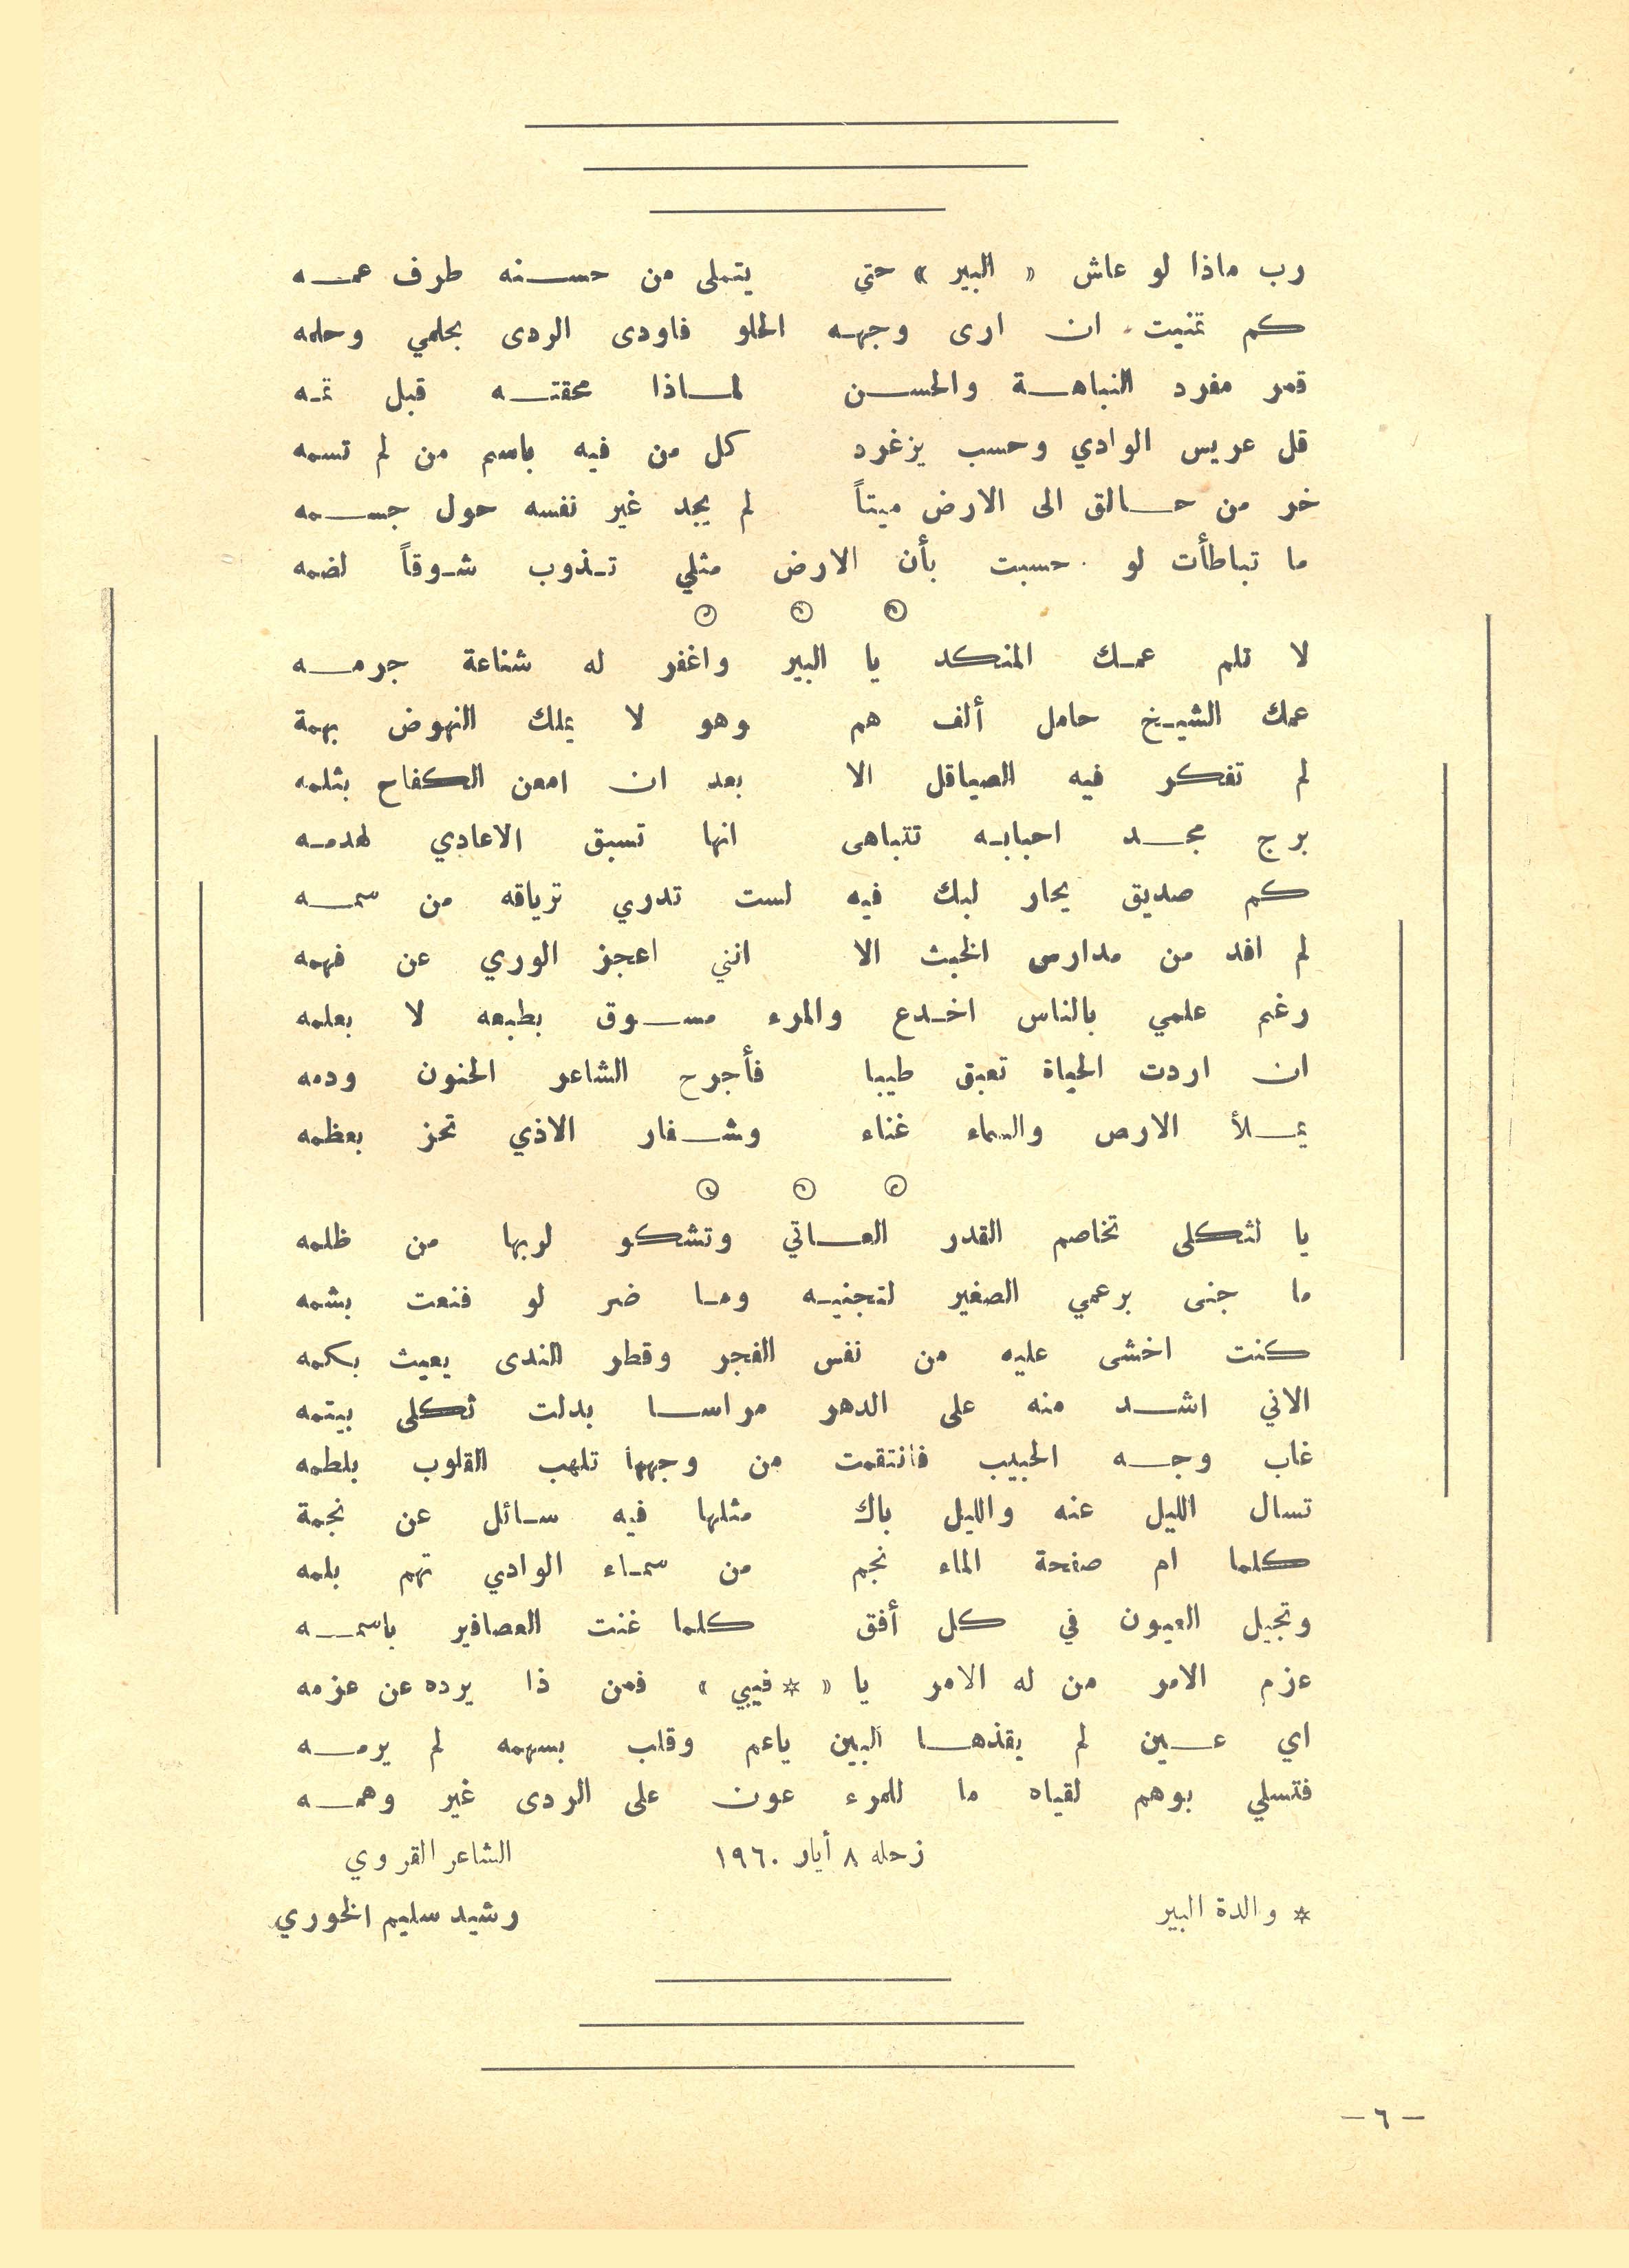 رب ماذا لو عاش « البير » حتى يتملى من حسنه طرف عمه
كم تمنيت ان ارى وجهه الحلو فاودى الردى بحلمي وحلمه
قمر مفرد النباهة والحسن لماذا محقته قبل تمه
قل عريس الوادي وحسب يزغرد كل من فيه باسم من لم تسمه
خر من حالق الى الارض ميتاً لم يجد غير نفسه حول جسمه
ما تباطأت لو حسبت بأن الارض مثلي تذوب شوقاً لضمه
لا تلم عمك المنكد يا البير واغفر له شناعة جرمه
عمك الشيخ حامل ألف هم وهو لا يملك النهوض بهمة
لم تفكر فيه الصياقل الا بعد ان امعن الكفاح بثلمه
برج مجد احبابه تتباهى انها تسبق الاعادي لهدمه
كم صديق يحار لبك فيه لست تدري ترياقه من سمه
لم افد من مدارس الخبث الا انني اعجز الوري عن فهمه
رغم علمي بالناس اخدع والمرء مسوق بطبعه لا بعلمه
ان اردت الحياة تعبق طيبا فأجرح الشاعر الحنون ودمه
يملأ الارص والسماء غناء وشفار الاذي تحز بعظمه
يا لثكلى تخاصم القدر العاتي وتشكو لربها من ظلمه
ما جنى برعمي الصغير لتجنيه وما ضر لو قنعت بشمه
كنت اخشى عليه من نفس الفجر وقطر الندى يعيث بكمه
الاني اشد منه على الدهر مراسا بدلت ثكلى بيتمه
غاب وجه الحبيب فانتقمت من وجهها تلهب القلوب بلطمه
تسال الليل عنه والليل باك مثلها فيه سائل عن نجمة
كلما ام صفحة الماء نجم من سماء الوادي تهم بلمه
وتجيل العيون في كل أفق كلما غنت العصافير باسمه
عزم الامر من له الامر يا « * فيبي » فمن ذا يرده عن عزمه
اي عين لم يقذها البين ياعم وقلب بسهمه لم يرمه
فتسلي بوهم لقياه ما للمرء عون على الردى غير وهمه
زحله ٨ أيار ١٩٦٠ الشاعر القروي
* والدة البير رشيد سليم الخوري
— ٦ —